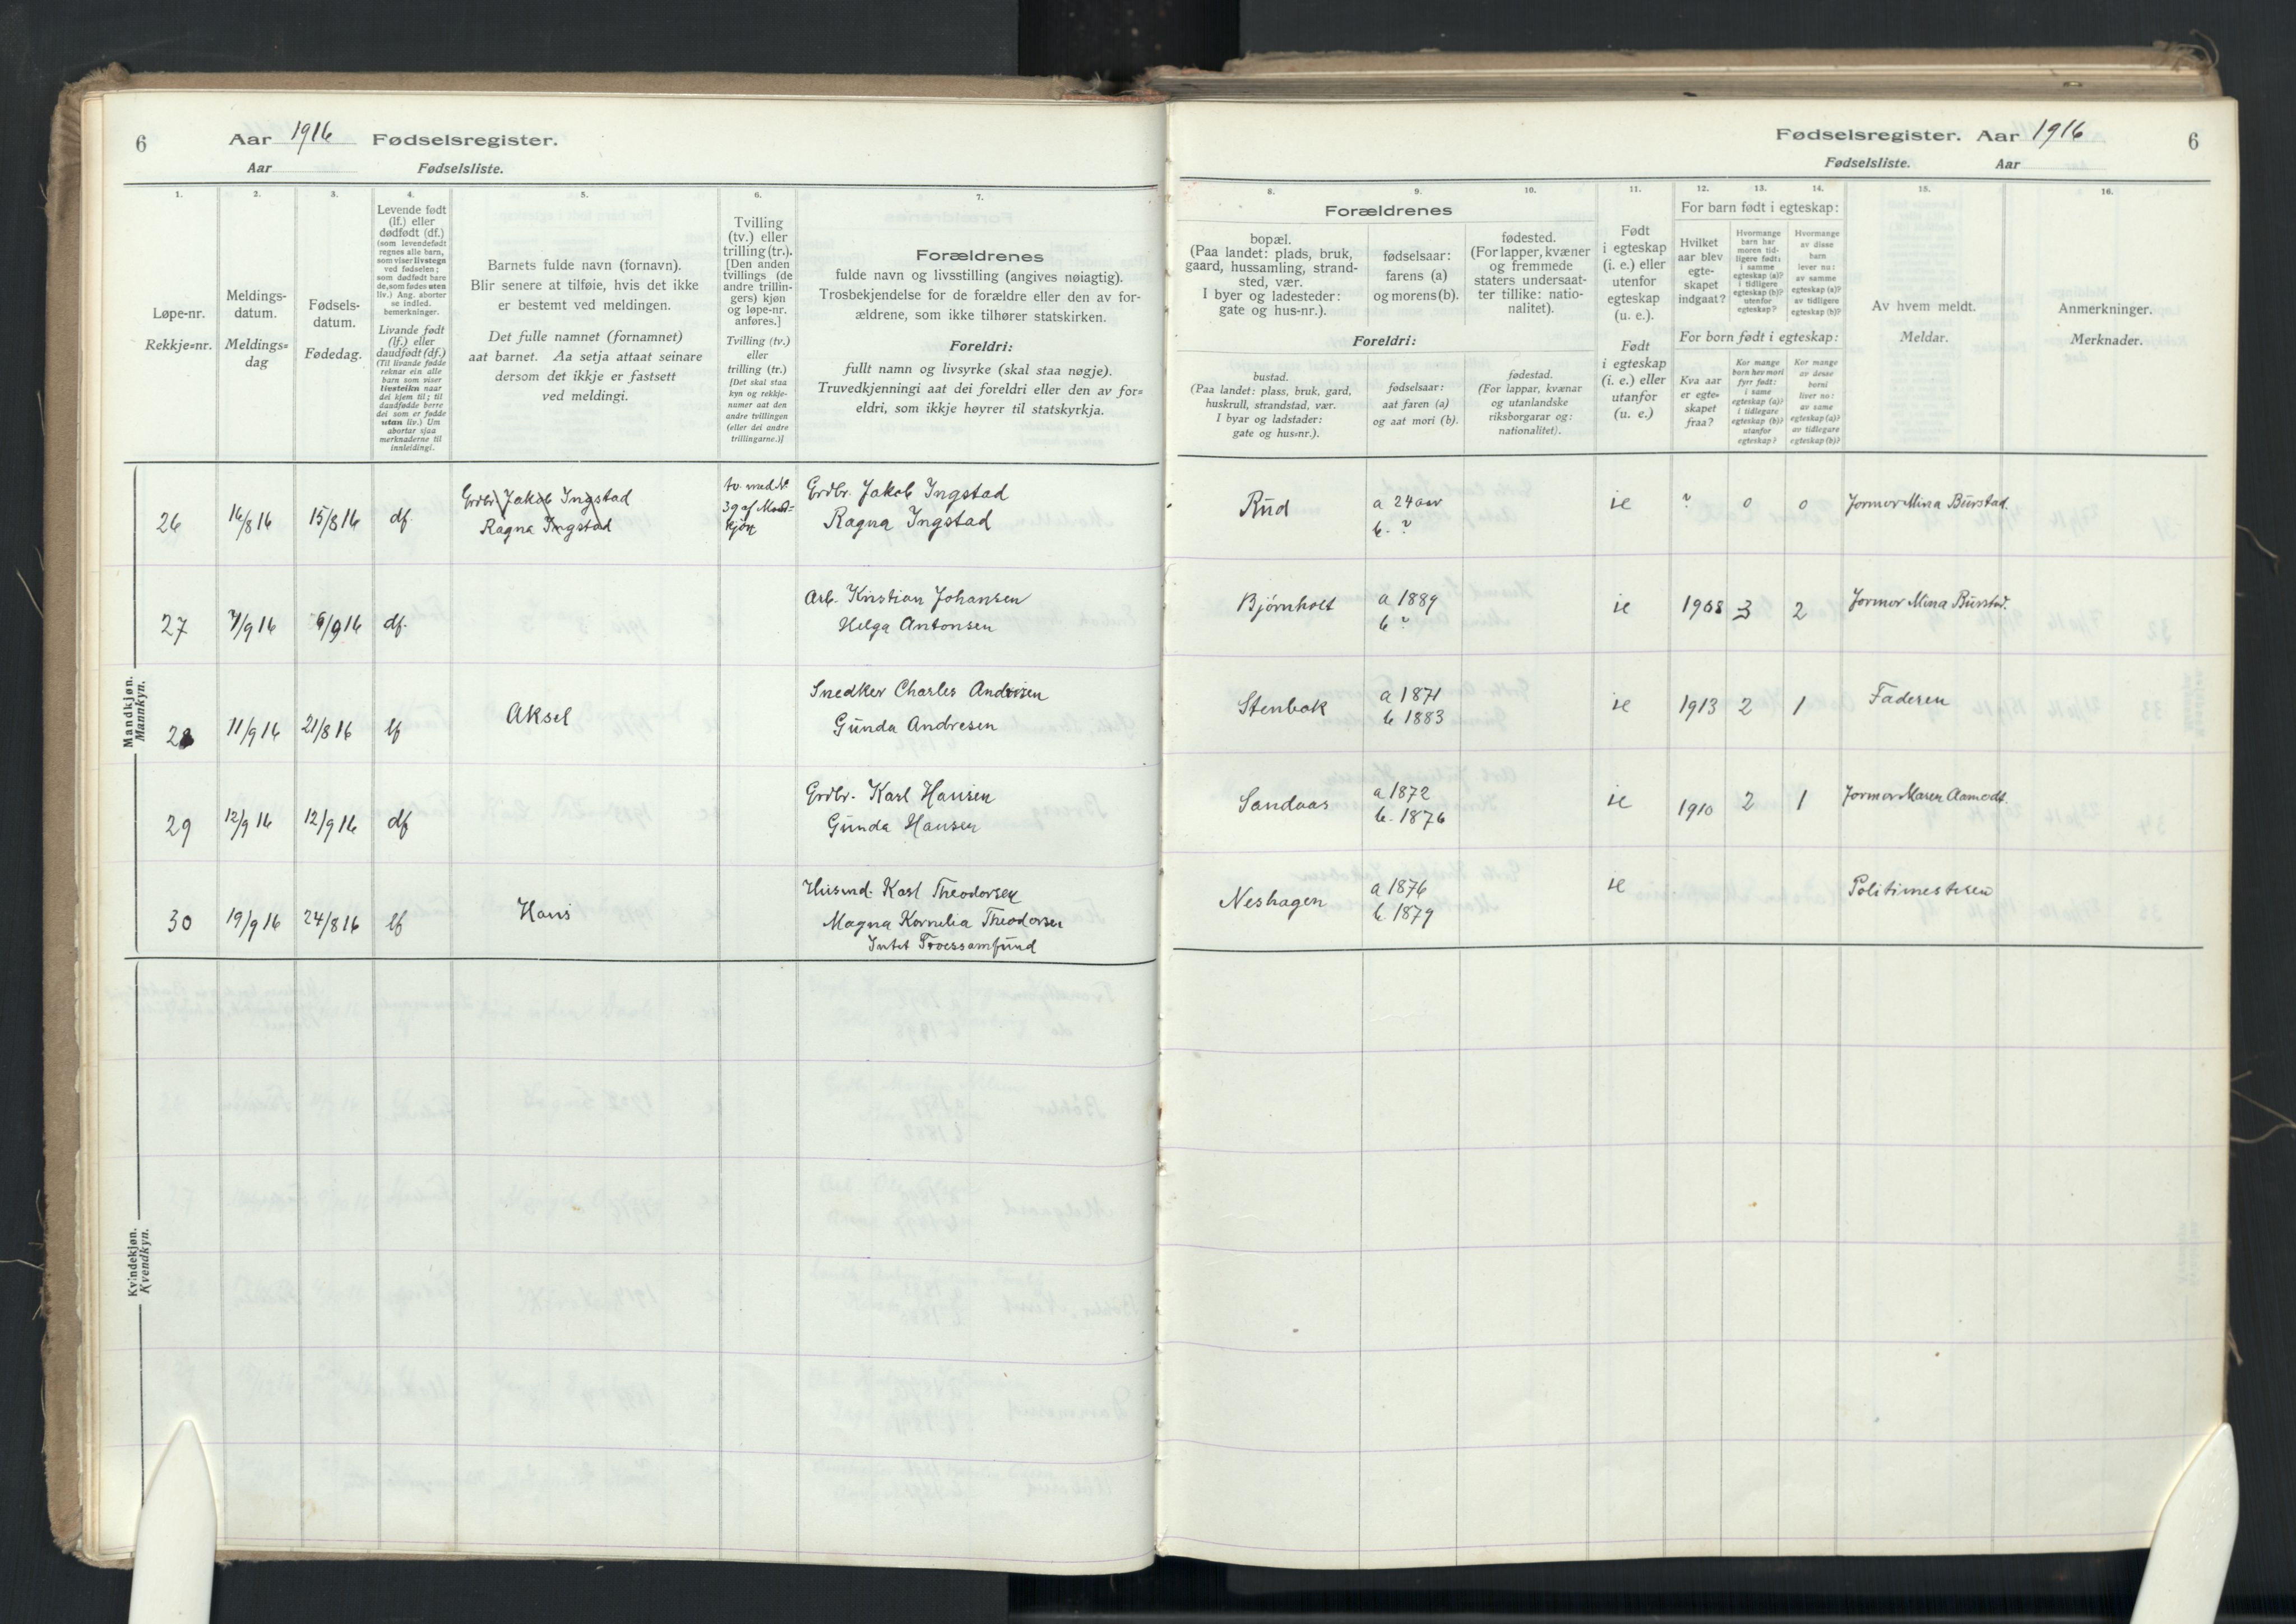 6
Aar 1916 Fødselsregister.
Aar Fødselsliste.
1.
2.
3.
4.
5.
6.
7.
Løpe-nr.
Rekkje-nr.
Meldings-
datum.
Meldings-
dag
Fødsels-
datum.
Fødedag.
Levende født
(lf.) eller
dødfødt (df.)
(som levendefødt
regnes alle barn,
som viser livstegn
ved fødselen;
som dødfødt bare
de, som fødes uten
liv.) Ang. aborter
se indled.
bemerkninger.
Livande født
(lf.) eller
daudfødt (df.)
(Til livande fødde
reknar ein alle
born som viser
livsteikn naar
dei kjem til; til
daudfødde berre
dei som er fødde
utan liv.) Um
abortar sjaa
merknaderne til
innleidingi.
Barnets fulde navn (fornavn).
Blir senere at tilføie, hvis det ikke
er bestemt ved meldingen.
Det fulle namnet (fornamnet)
aat barnet. Aa setja attaat seinare
dersom det ikkje er fastsett
ved meldingi.
Tvilling
(tv.) eller
trilling (tr.).
[Den anden
tvillings (de
andre trillin-
gers) kjøn
og løpe-nr.
anføres.]
Tvilling (tv.)
eller
trilling (tr.)
[Det skal staa
kyn og rekkje-
numer aat den
andre tvillingen
(eller dei andre
trillingarne.)]
Forældrenes
fulde navn og livsstilling (angives nøiagtig).
Trosbekjendelse for de forældre eller den av for-
ældrene, som ikke tilhører statskirken.
Foreldri:
fullt namn og livsyrke (skal staa nøgje).
Truvedkjenningi aat dei foreldri eller den av for-
eldri, som ikkje høyrer til statskyrkja.
Mandkjøn.
Mannkyn.
26
16/8 16
15/8 16
df.
Grdbr. Jakob Ingstad
Ragna Ingstad
tv. med Nr.
39 af
kjøn
Grdbr. Jakob Ingstad
Ragna Ingstad
27
7/9 16
6/9 16
df.
Arb. Kristian Johansen
Helga Antonsen
28
11/9 16
21/8 16
lf
Aksel
Snedker Charles Andresen
Gunda Andresen
29
12/9 16
12/9 16
df
Grdbr. Karl Hansen
Gunda Hansen
30
19/9 16
24/8 16
lf
Hans
Husmd. Karl Theodorsen
Magna Kornelia Theodorsen
Intet Troessamfund
Kvindekjøn.
Kvendkyn.
Fødselsregister. Aar 1916
6
Fødselsliste. Aar
8.
9.
10.
11.
12.
13.
14.
15.
16.
Forældrenes
bopæl.
(Paa landet: plads, bruk,
gaard, hussamling, strand-
sted, vær.
I byer og ladesteder:
gate og hus-nr.).
fødselsaar:
farens (a)
og morens (b).
fødested.
(For lapper, kvæner
og fremmede
staters undersaat-
ter tillike: natio-
nalitet).
Foreldri:
bustad.
(Paa landet: plass, bruk, gard,
huskrull, strandstad, vær.
I byar og ladstader:
gate og hus-nr.).
fødselsaar:
aat faren (a)
og aat mori (b).
fødestad.
(For lappar, kvænar
og utanlandske
riksborgarar og:
nationalitet).
Født
i egteskap
(i. e.) eller
utenfor
egteskap
(u. e.).
Født
i egteskap
(i. e.) eller
utanfor
(u. e.)
For barn født i egteskap:
Hvilket
aar blev
egte-
skapet
indgaat?
Hvormange
barn har
moren tid-
ligere født:
i samme
egteskap (a)?
i tidligere
egteskap (b)?
utenfor
egteskap?
Hvormange
av disse
barn
lever nu:
av samme
egteskap (a)?
av tidligere
egteskap (b)?
For born født i egteskap:
Kva aar
er egte-
skapet
fraa?
Kor mange
born hev mori
fyrr født:
i same
egteskap (a)?
i tidlegare
egteskap (b)?
utanfor
egteskap?
Kor mange
av desse
borni
liver no:
av same
egteskap (a)?
av tidlegare
egteskap (b)?
Av hvem meldt.
Meldar.
Anmerkninger.
Merknader.
Rud
a 24 aar
b. ?
ie
?
0
0
Jormor Mina Burstad.
Bjørnholt
a 1889
b ?
ie
1908
3
2
Jormor Mina Burstad.
Stenbak
a 1871
b 1883
ie
1913
2
1
Faderen
Sandaas
a 1872
b. 1876
ie
1910
2
1
Jormor Maren Aamodt.
Neshagen
a 1876
b. 1879
ie
Politimesteren